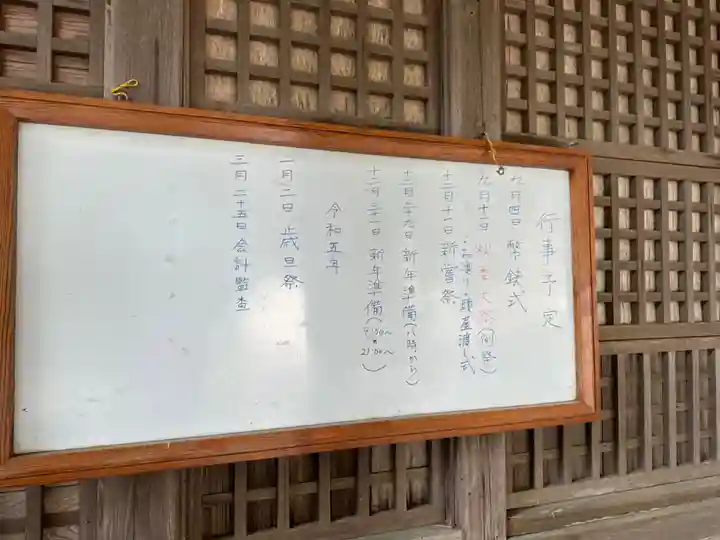 行事予定
九月四日 幣鉄式
九月十一日 秋季大祭(例祭)
頭屋渡し式
十二月十一日 新嘗祭
十二月二十九日 新年準備(八時から)
十二月三十一日 新年準備(9:00〜 21:00〜)
令和五年
一月二日 歳旦祭
三月二十五日 会計監査